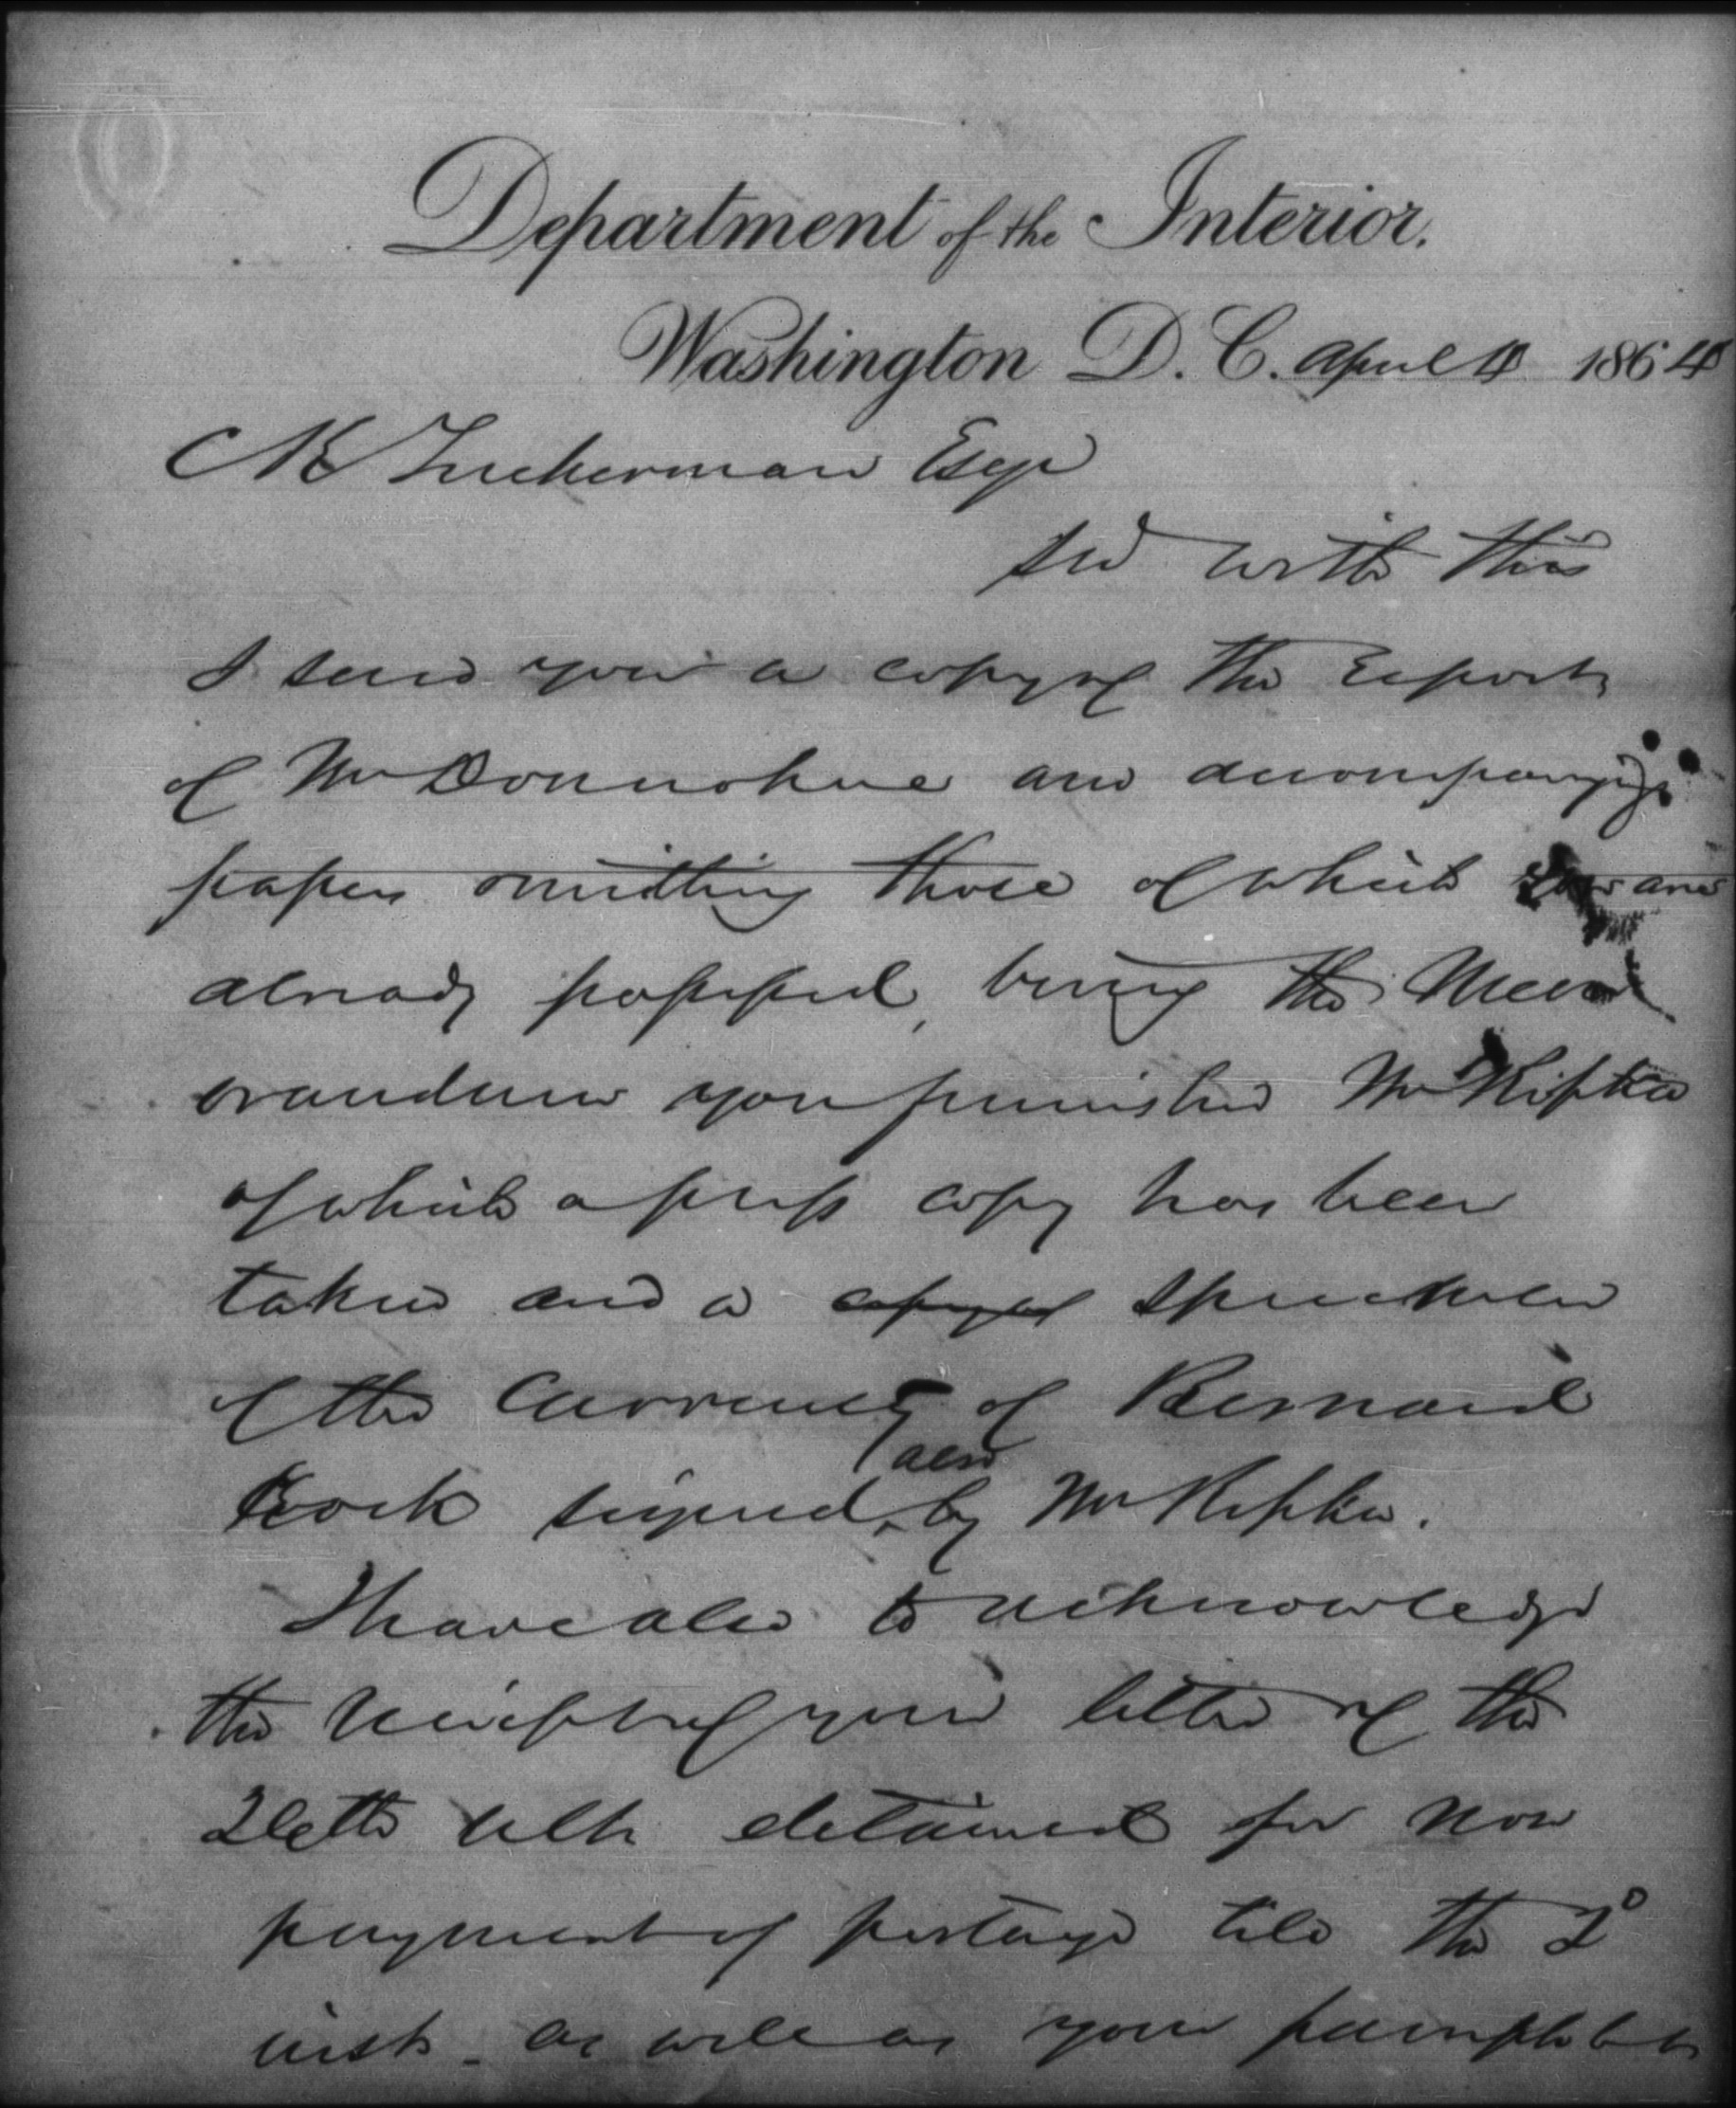 Department of the Interior.
Washington D. C. April 4 1864
C K Tuckerman Esqr
Sir with this
I send you a copy of the report
of Mr Donnohue and accompanying
papers omitting those of which you are
already possessed, being the Mem
orandum you furnished Mr Kipka
of which a press copy has been
taken and a copy of specimen
of the Currency of Bernard
Kock signed also by Mr Kipka.
I have also to acknowledge
the receipt of your letter of the
26th ulto detained for non
payment of postage till the 2d
inst. as well as your pamphlet